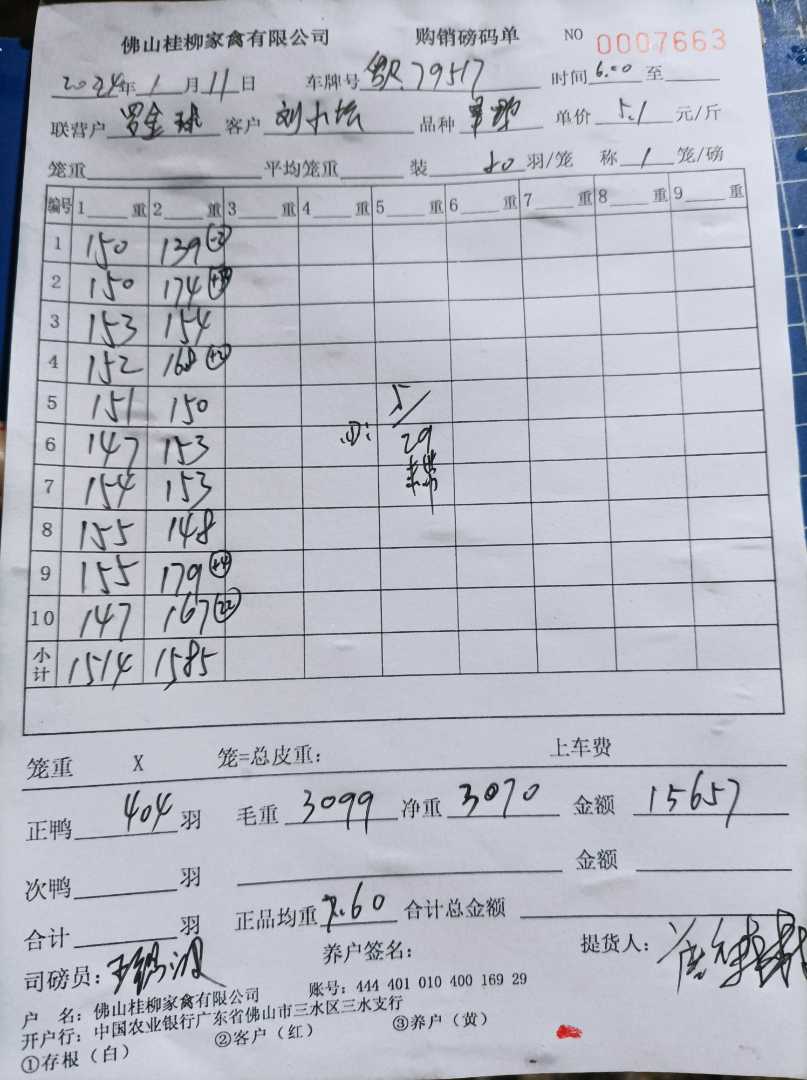 佛山桂柳家禽有限公司 购销磅码单 NO 0007663
2024年 1 月 11 日 车牌号 79517 时间 6.00 至
联营户 罗金球 客户 刘 品种 单价 5.1 元/斤
笼重 平均笼重 装 20 羽/笼 称 1 笼/磅
编号 1 重 2 重 3 重 4 重 5 重 6 重 7 重 8 重 9 重
1 150 139
2 150 174
3 153 154
4 152 168
5 151 150 5/
6 147 153 29
7 154 153
8 155 148
9 155 179 (+4)
10 147 167
小计 1514 1585
笼重 X 笼=总皮重: 上车费
正鸭 404 羽 毛重 3099 净重 3070 金额 15657
次鸭 羽 金额
合计 羽 正品均重 7.60 合计总金额
司磅员: 养户签名: 提货人:
户 名: 佛山桂柳家禽有限公司 账号: 444 401 010 400 169 29
开户行: 中国农业银行广东省佛山市三水区三水支行
①存根（白） ②客户（红） ③养户（黄）